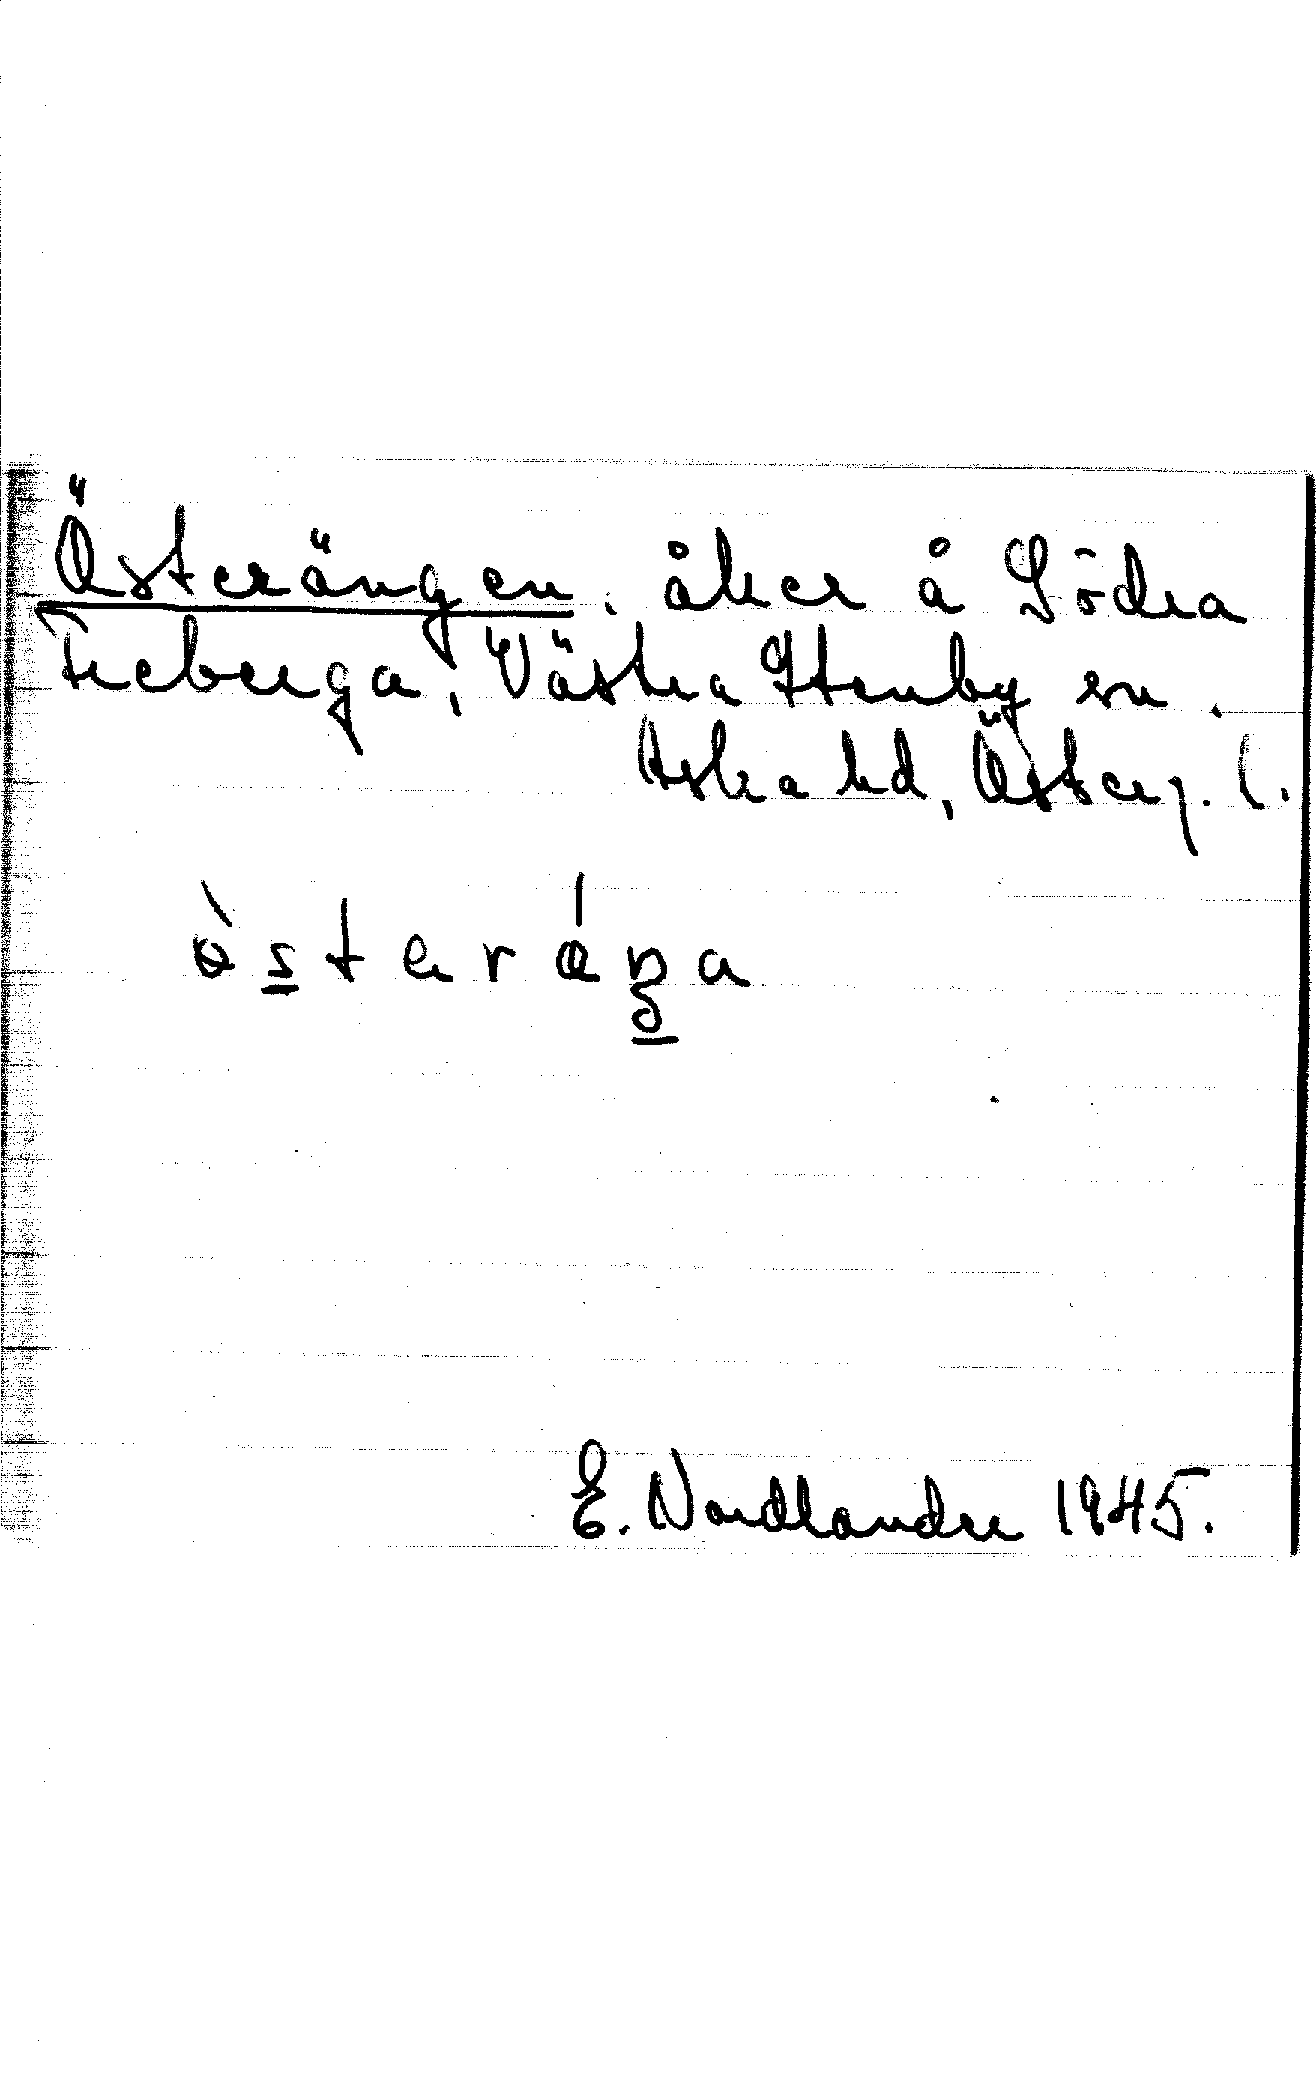 Österängen. åker å Södra
Freberga, Västra Stenby sn.
Aska hd, Österg. l.
E. Nordlander 1945.